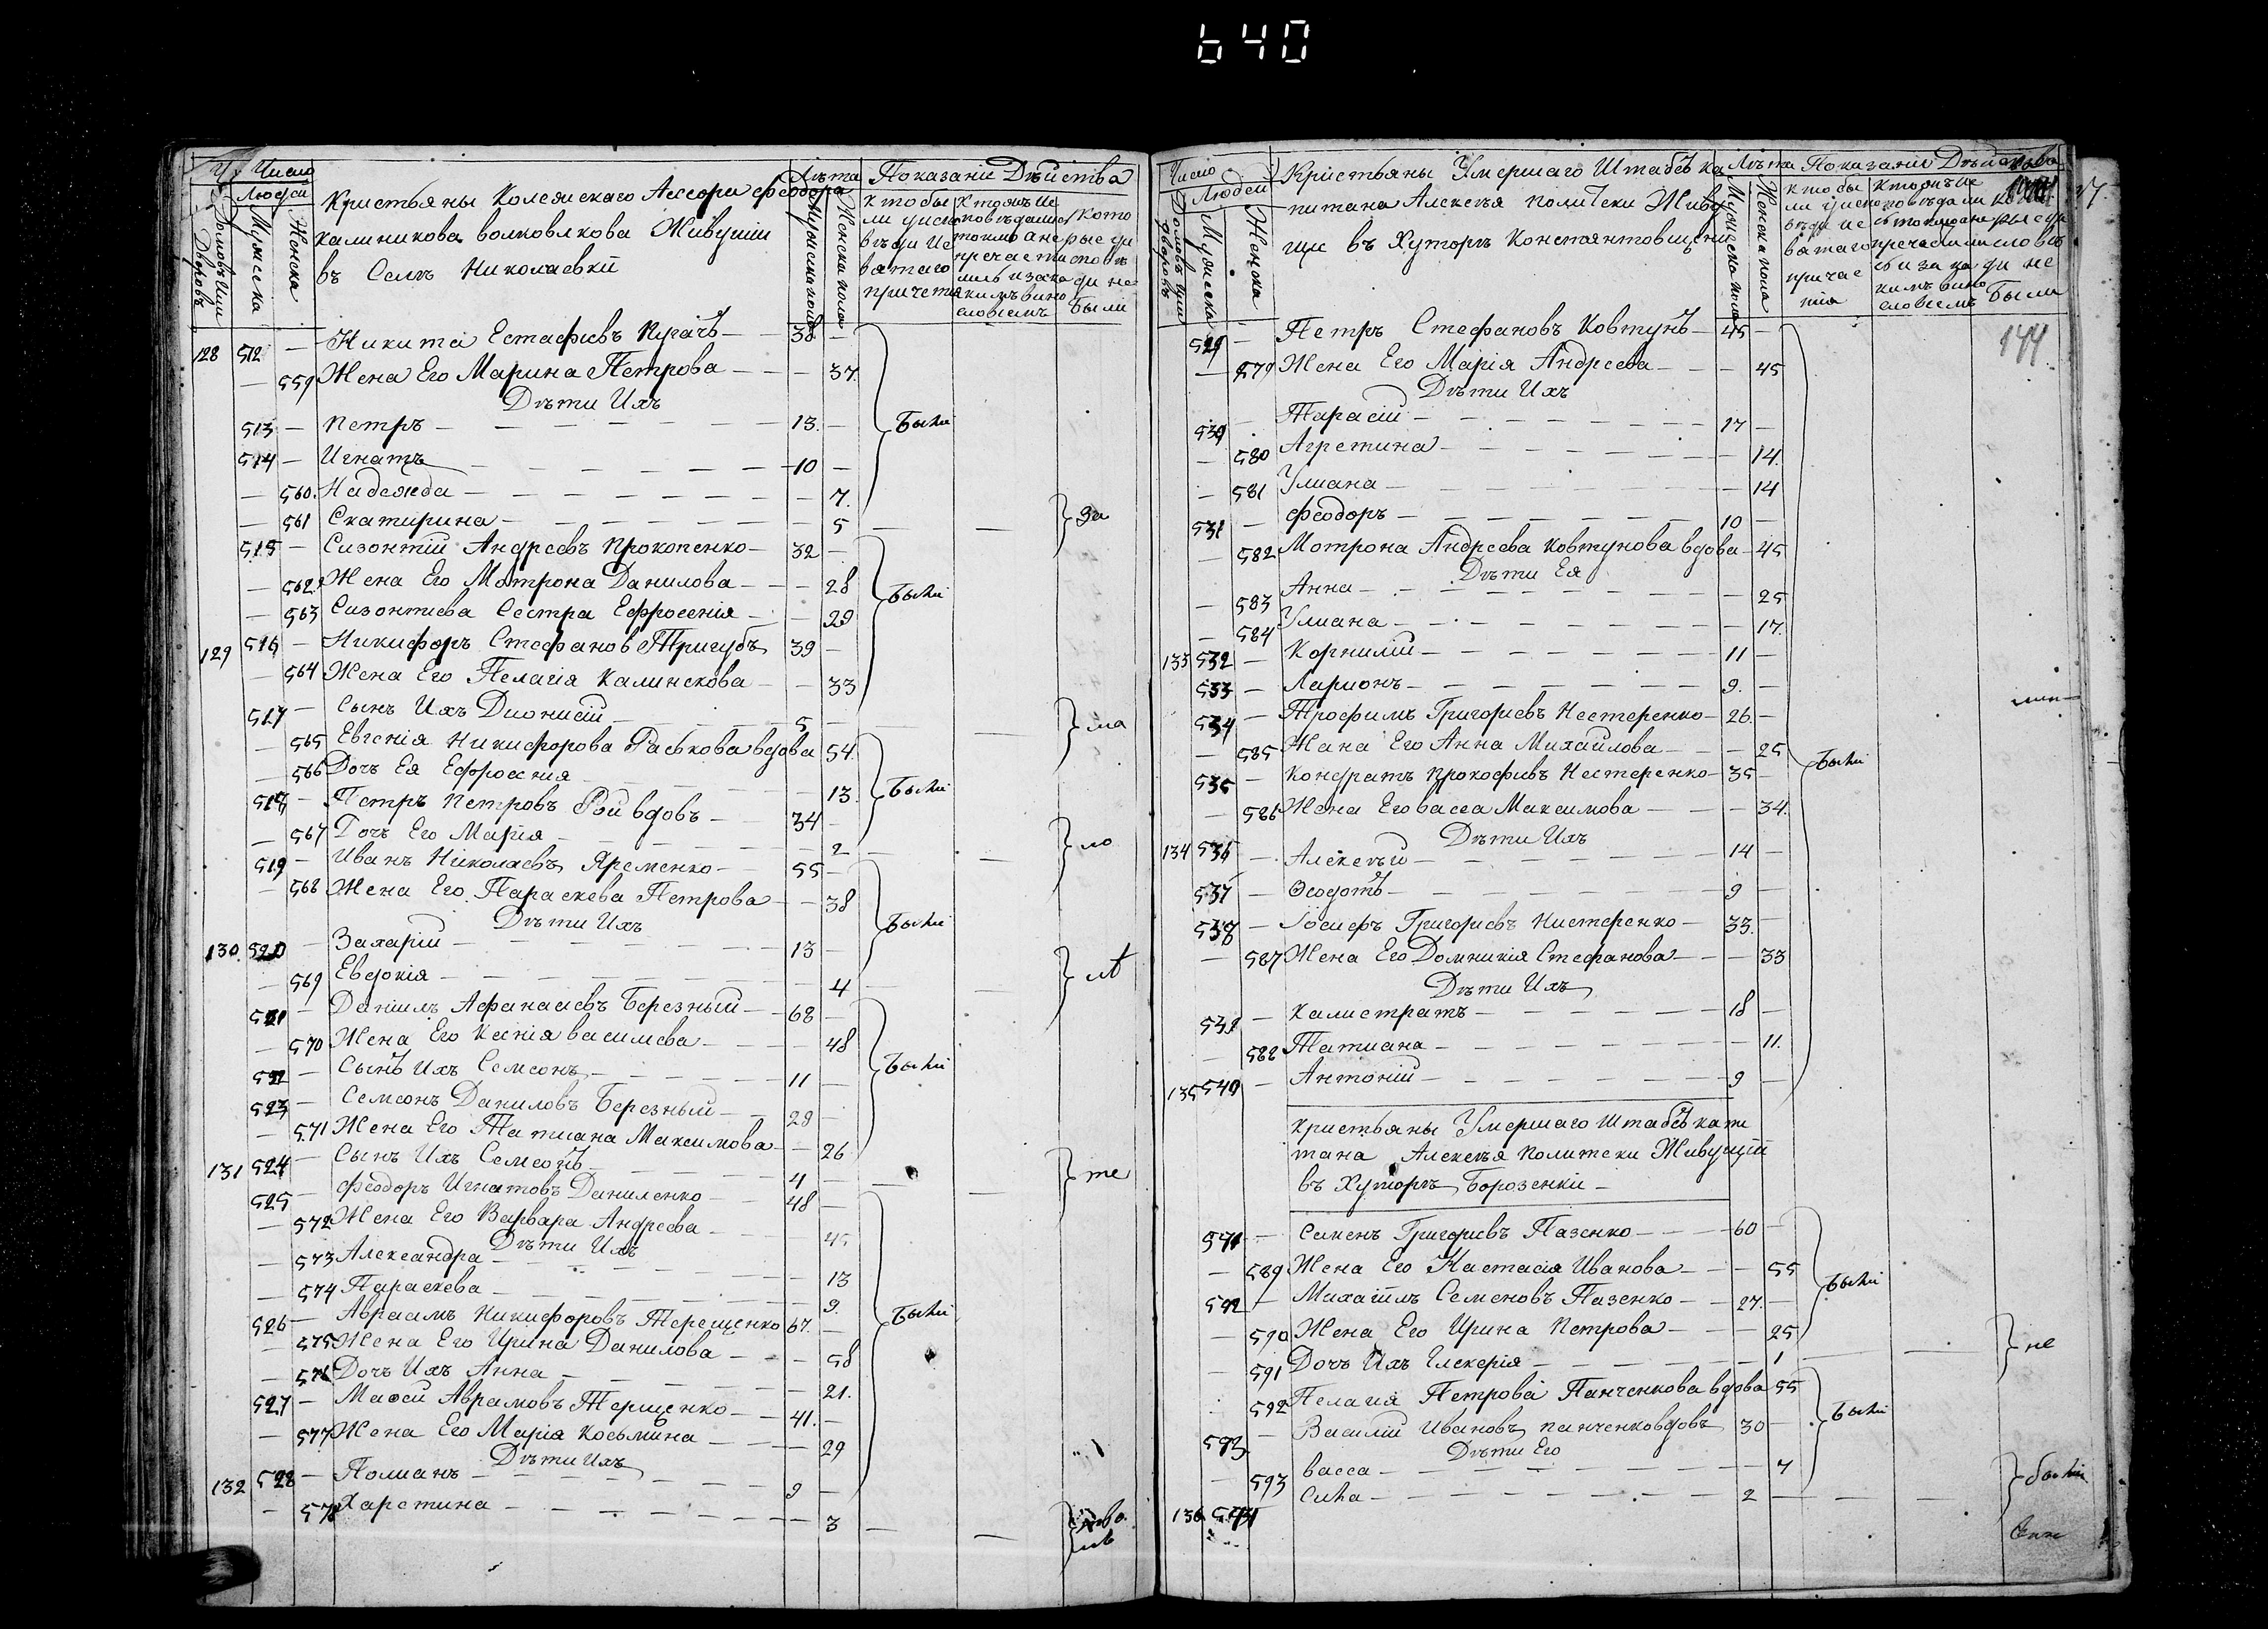 640
Число
Людей
Домовъ или Дворовъ
Мужеска
Женска
Кристьяны Колежскаго Ассора Феодора
Калиникова Волковлкова Живущии
въ Селѣ Николаевкй
Лѣта
Мужеска пола
Женска пола
Показанiе Дѣйства
128 512 — Никита Естафiевъ Пугачъ — 38 —
— 559 Жена Его Марина Петрова — — 37.
Дѣти Ихъ
513 — Петръ — 13. — были
514 — Игнатъ — 10 —
— 560. Надежда — 7.
— 561 Екатирина — 5 — — за
515 — Сизонтiй Андреевъ Прокопенко — 32 —
— 562 Жена Его Мотрона Данилова — — 28 были
— 563 Сизонтиева Сестра Ефросенiя — — 29
129 516 — Никифоръ Стефановъ Тригубъ 39 —
— 564 Жена Его Пелагiя Калинскова — — 33
517 — Сынъ Ихъ Дионисiй — 5 — ма
— 565 Евгенiя Никифорова Раськова вдова 54.
— 566 Дочъ Ея Ефросенiя — 13. были
518 — Петръ Петровъ Рой вдовъ — 34 —
— 567 Дочъ Его Марiя — 2 — ло
519 — Иванъ Николаевъ Яременко — 55 —
— 568 Жена Его Параскева Петрова — — 38
Дѣти Ихъ были
130. 520 — Захарiй — 13 —
— 569 Евдокiя — 4 — лѣ
521 — Данiилъ Афанасиевъ Березный — 68 —
— 570 Жена Его Ксенiя Василиева — 48
522 — Сынъ Ихъ Семсонъ — 11 — были
523 — Семсонъ Даниловъ Березный — 29 —
— 571 Жена Его Татиана Максимова — — 26
131 524 — Сынъ Ихъ Семсонъ — 4 — — те
525 — Феодоръ Игнатовъ Даниленко — 48 —
— 572 Жена Его Варвара Андреева — 45
Дѣти Ихъ
— 573 Александра — 13
— 574 Параскева — 9.
526 — Авраамъ Никифоровъ Терещенко 67. — были
— 575 Жена Его Ирина Данилова — — 58
— 576 Дочъ Ихъ Анна — 21.
527 — Мафей Аврамовъ Терещенко — 41. —
— 577 Жена Его Марiя Косьмина — — 29
Дѣти Ихъ
132 528 — Полианъ — 9 —
— 578 Харетина — 3 — —
Число
Людей
Домовъ или дворовъ
Мужеска
Женска
Кристьяны Умершаго Штабсъ ка
питана Алексѣя Политеки Живу
щие въ Хуторѣ Констянтовщени
Лѣта
Мужеска пола
Женска пола
Показанiе Дѣйства
144
529 — Петръ Стефановъ Ковтунъ — 45 —
— 579 Жена Его Марiя Андреева — — 45
Дѣти Ихъ
530 — Тарасiй — 17 —
— 580 Агретина — 14.
— 581 Улиана — 14
531 — Феодоръ — 10 —
582 Мотрона Андреева Ковтунова вдова — 45
Дѣти Ея
— 583 Анна — 25
— 584 Улиана — 17.
133 532 — Корнилiй — 11 —
533 — Ларионъ — 9. —
534 — Трофимъ Григориевъ Нестеренко — 26. —
— 585 Жена Его Анна Михайлова — — 25 были
535 — Кондратъ Прокофиевъ Нестеренко — 35 —
— 586 Жена Его Васса Максимова — — 34.
Дѣти Ихъ
134 536 — Алексѣй — 14 —
537 — Ѳеодотъ — 9 —
538 — Iосифъ Григориевъ Нистеренко — 33. —
— 587 Жена Его Домникiя Стефанова — — 33
Дѣти Ихъ
539 — Калистратъ — 18 —
— 588 Татиана — 11.
135 540 — Антонiй — 9 —
Кристьяны Умершаго Штабсъ капи
тана Алексѣя Политеки Живущiи
въ Хуторѣ Борозенки —
541 — Семенъ Григориевъ Пазенко — 60 —
— 589 Жена Его Настасiя Иванова — — 55
592 — Михаилъ Семеновъ Пазенко — 27. — были
— 590 Жена Его Ирина Петрова — 25
— 591 Дочъ Ихъ Гликерiя — 1 — — не
592 Пелагия Петрова Панченкова вдова 55
593 — Василiй Ивановъ Панченко вдовъ 30 — были
Дѣти Его
— 593 Васса — 7
136 Сила — 2 — — были